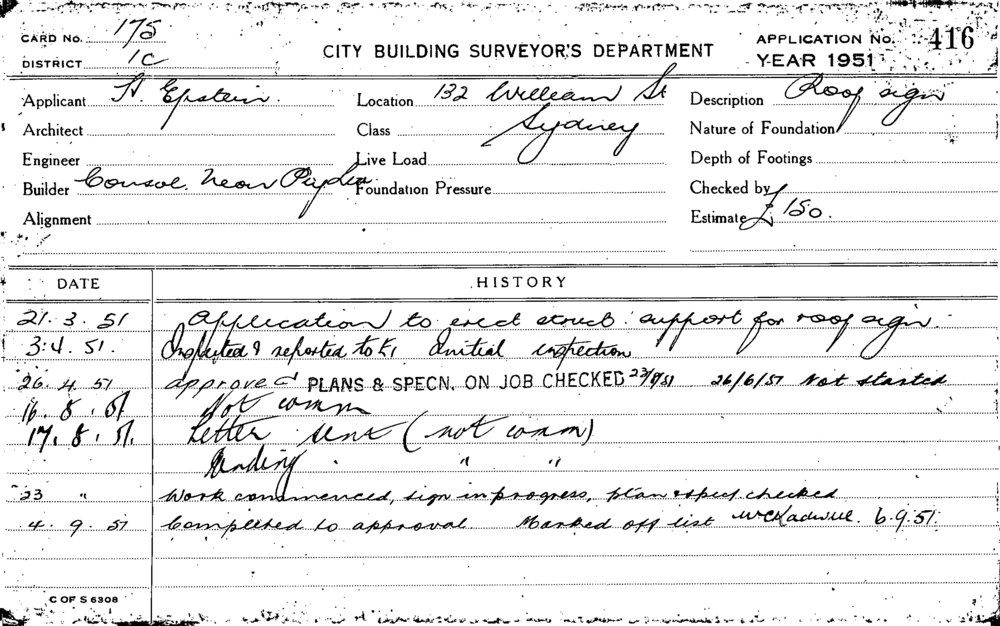 CARD No. 175
DISTRICT 1C
CITY BUILDING SURVEYOR'S DEPARTMENT
APPLICATION No. 416
YEAR 1951
Applicant H. Epstein.
Location 132 William St
Description Roof sign
Architect
Class Sydney
Nature of Foundation
Engineer
Live Load
Depth of Footings
Builder Consol. Neon
Foundation Pressure
Checked by
Alignment
Estimate £ 150.
DATE HISTORY
21.3.51 Application to erect struct. support for roof sign.
3.4.51. Inspected & reported to Initial inspection
26.4.51 approved PLANS & SPECN. ON JOB CHECKED 26/6/51 Not started
16.8.51 Not comm
17.8.51. Letter sent (not comm)
Pending " "
23 " Work commenced, sign in progress, plan & spect checked
4.9.51 Completed to approval Marked off list 6.9.51.
C OF S 6308